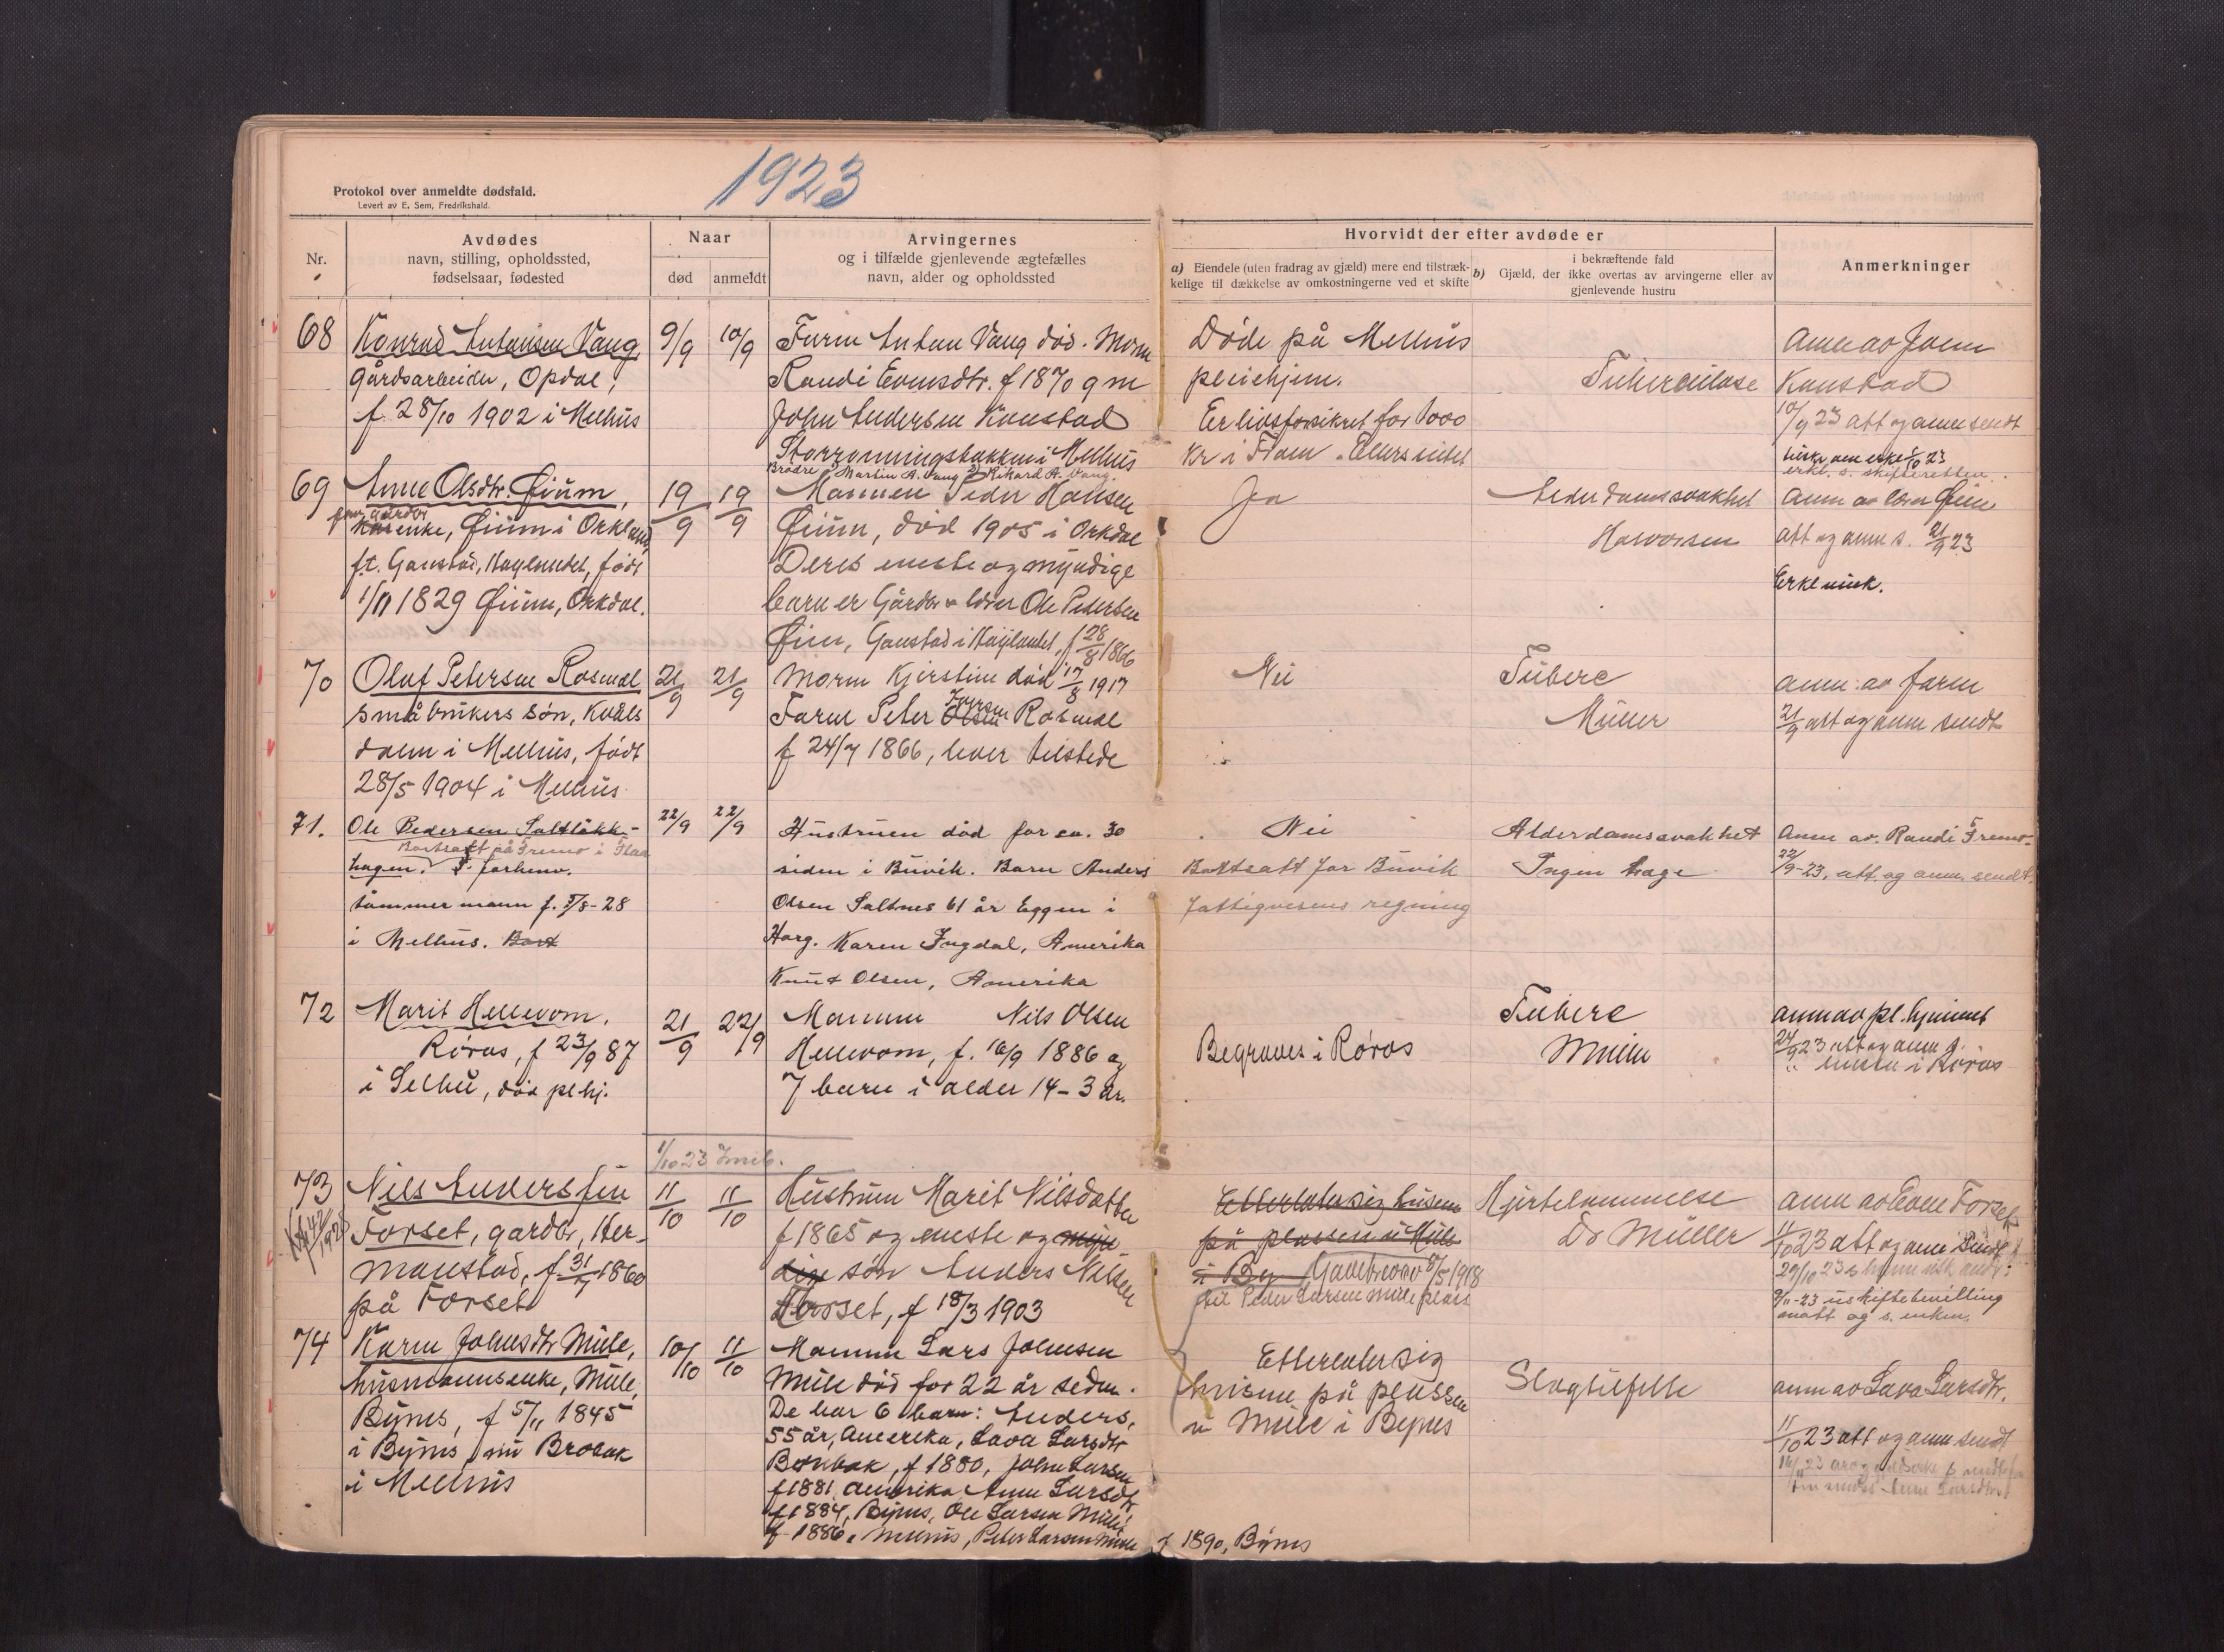 1923
Protokol over anmeldte dødsfald.
Levert av E. Sem, Fredrikshald.
Nr.
Avdødes
navn, stilling, opholdssted,
fødselsaar, fødested
Naar
død
anmeldt
Arvingernes
og i tilfælde gjenlevende ægtefælles
navn, alder og opholdssted
Hvorvidt der efter avdøde er
a) Eiendele (uten fradrag av gjæld) mere end tilstræk-
kelige til dækkelse av omkostningerne ved et skifte
i bekræftende fald
b) Gjæld, der ikke overtas av arvingerne eller av
gjenlevende hustru
Anmerkninger
68
Konrad Antonsen Vang
gårdsarbeider, Opdal,
f. 28/10 1902 i Melhus
9/9
10/9
Faren Anton Vang død. Moren
Randi Evensdtr. f 1870 g m
John Andersen Kanstad
Storrønningsbakken i Melhus
Brødre Martin A. Vang Rikard A. Vang.
Døde på Melhus
pleiehjem.
Er livsforsikret for 1000
Kr i Fram. Ellers intet
Tuberculose
Anm av John
Kanstad
10/9 23 att og anm sendt
69
Anne Olsdtr. Øium,
gårdbr
enke, Øium i Orkland
f.t. Ganstad, Høylandet, født
1/11 1829 Øium, Orkdal.
19/9
19/9
Mannen Peder Hansen
Øium, død 1905 i Orkdal
Deres eneste og myndige
barn er Gårdbr Ole Pedersen
Øien, Ganstad i Høylandet, f 28/8 1866
Ja
Alderdomssvakhet
Halvorsen
att og anm s. 21/9 23
70
Oluf Petersen Rosmæl
småbrukers søn, Kvåls
dalen i Melhus, født
28/5 1904 i Melhus
21/9
21/9
Moren Kjerstine død 17/8 1917
Faren Peter Olsen Iversen Rosmæl
f 24/7 1866, lever tilstede
Nei
Tuberc
Müller
anm. av faren
21/9 att og anm sendt
71.
Ole Pedersen Saltløkk-
Bortsatt på Fremo i Flaa
hagen. F. forhenv.
tømmermann f. 5/8-28
i Melhus. Bort
22/9
22/9
Hustruen død for ca. 30
siden i Buvik. Barn Anders
Olsen Saltnes 61 år Eggen i
Horg. Karen Ingdal, Amerika
Knut Olsen, Amerika
Nei
Bortsatt for Buvik
fattigvesens regning
Alderdomssvakhet
Ingen læge
Anm av. Randi Fremo
22/9-23, att. og anm. sendt.
72
Marit Hellevom.
Røros, f 23/9 87
i Selbu, død pl.hj.
21/9
22/9
Mannen Nils Olsen
Hellevom, f. 16/9 1886 og
7 barn i alder 14-3 år.
Begraves i Røros
Tuberc
Müller
anm av pl. hjemmet
24/9 23 att og anm s.
lensm i Røros
1/10 23
73
Nils Anderssen
Forset, gårdbr, Her-
manstad, f. 31/7 1860
på Forset
11/10
11/10
Hustruen Marit Nilsdatter
f 1865 og eneste og myn
dige søn Anders Nilsen
Forset, f 18/3 1903
Efterlater sig husene
på plassen u Mule
i By Gavebrev av 8/5 1918
til Peder Larsen Mule plass
Hjertelammelse
Dr Müller
anm av Even Forset
11/10 23 att og anm sendt
9/11-23 uskiftebevilling
matt og s. enken.
74
Karen Johnsdtr Mule,
husmannsenke, Mule,
Bynes, f 5/11 1845
i Bynes nu Brobak
i Melhus
10/10
11/10
Mannen Lars Johnsen
Mule død for 22 år siden.
De har 6 barn: Anders,
55 år, Amerika, Lava Larsdtr
Brobak, f 1880, John Larsen
f 1881 Amerika Anne Larsdtr
f 1884, Bynes, Ole Larsen Mule
f 1886, Melhus, Peter Larsen Mule f 1890, Bynes
Etterlater sig
husene på plassen
u Mule i Bynes
Slagtilfelle
anm av Lava Larsdtr.
11/10 23 att og anm sendt